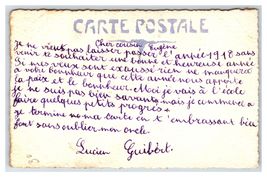 CARTE POSTALE
Cher cousin Eugène
Je ne veux pas laisser passer l'année 1918 sans
venir te souhaiter une bonne et heureuse année
Si mes vœux sont exaucés rien ne manquera
à votre bonheur que cette année nous apporte
la paix et le bonheur. Moi je vais à l'école
je ne suis pas bien savante mais je commence a
faire quelques petits progrès.
Je termine ma carte en t'embrassant bien
fort sans oublier mon oncle.
Lucien Guibert.